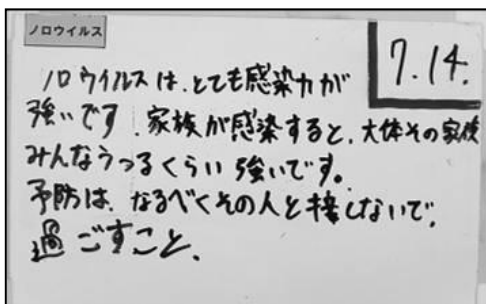 ノロウイルス
7.14.
ノロウイルスは、とても感染力が
強いです.家族が感染すると、大体その家族
みんなうつるくらい強いです。
予防は、なるべくその人と接しないで、
過ごすこと、